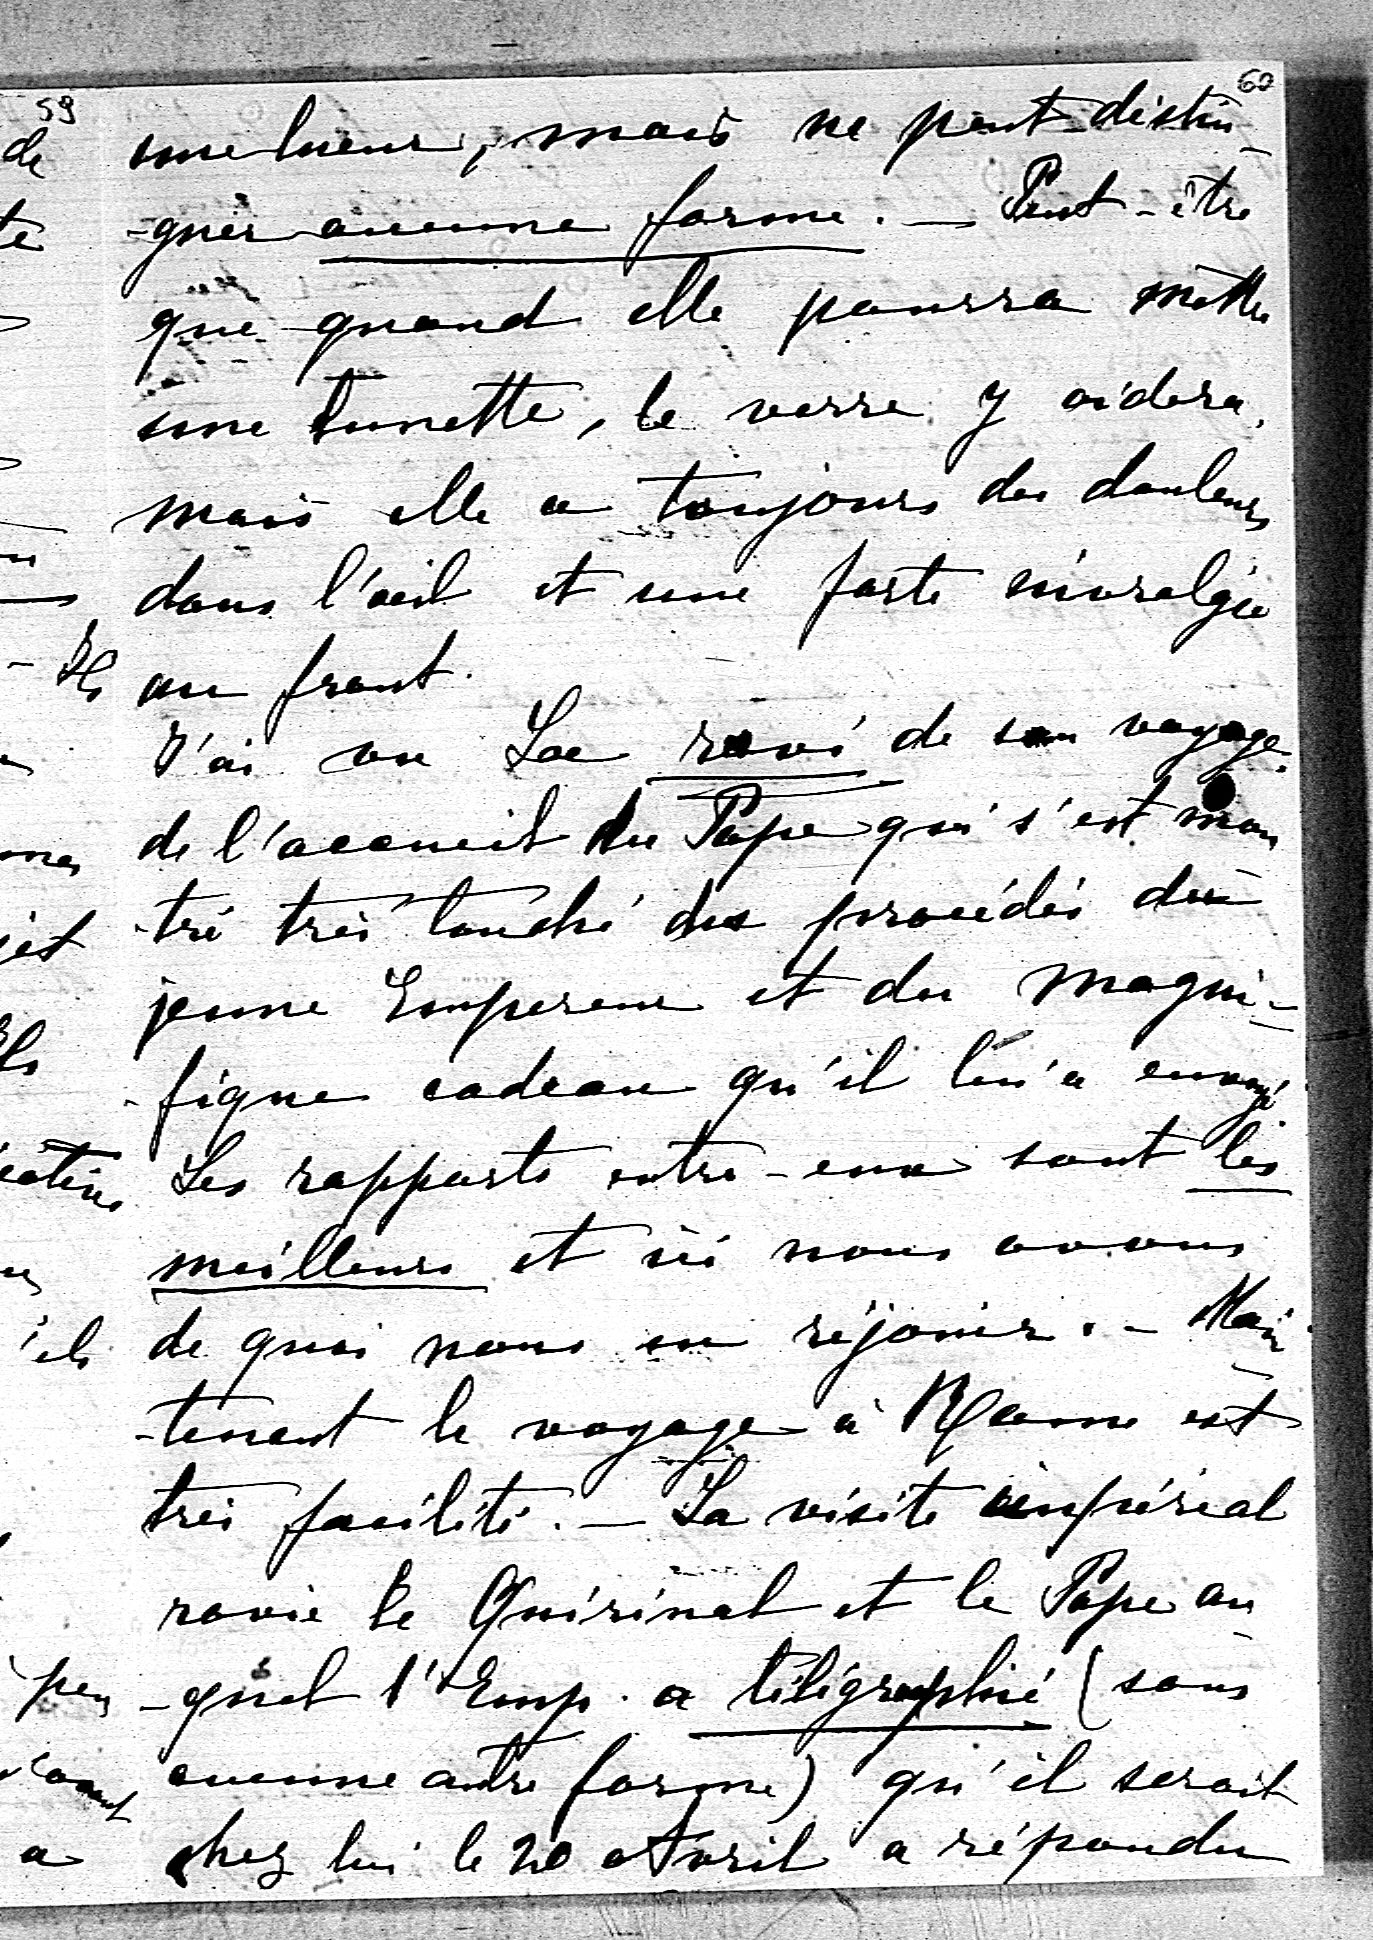 59
60
une lueur, mais ne peut distin-
-guer aucune forme. — Peut-être
que quand elle pourra mettre
une lunette, le verre y aidera,
mais elle a toujours des douleurs
dans l'œil et une forte névralgie
au front.
J'ai vu Loe ravi de son voyage,
de l'accueil du Pape qui s'est mon
tré très touché des procédés du
jeune Empereur et du magni-
-fique cadeau qu'il lui a envoyé.
Les rapports entre-eux sont les
meilleurs et ici nous avons
de quoi nous en réjouir. — Main
-tenant le voyage à Rome est
très facilité. — La visite impérial
ravie le Quirinal et le Pape au
-quel l'Emp. a télégraphié (sans
aucune autre forme) qu'il serait
chez lui le 20 Avril a répondu